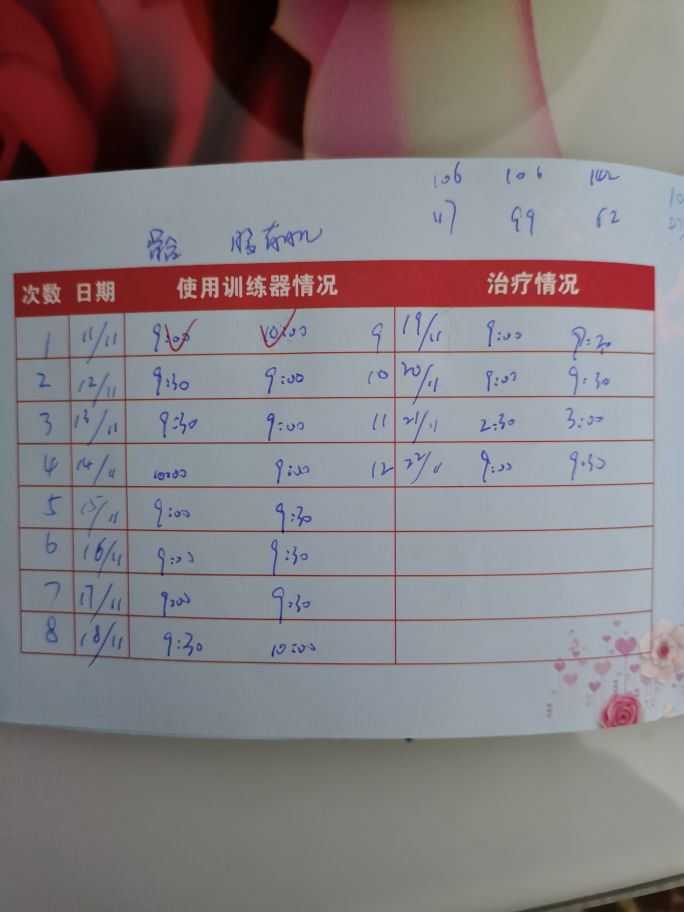 106 106 142
117 99 62
次数 日期 使用训练器情况 治疗情况
1 11/11 9:00 10:00 9 19/11 9:00
2 12/11 9:30 9:00 10 20/11 9:00 9:30
3 13/11 9:30 9:00 11 21/11 2:30 3:00
4 14/11 10:00 9:00 12 22/11 9:00 9:30
5 15/11 9:00 9:30
6 16/11 9:00 9:30
7 17/11 9:00 9:30
8 18/11 9:30 10:00